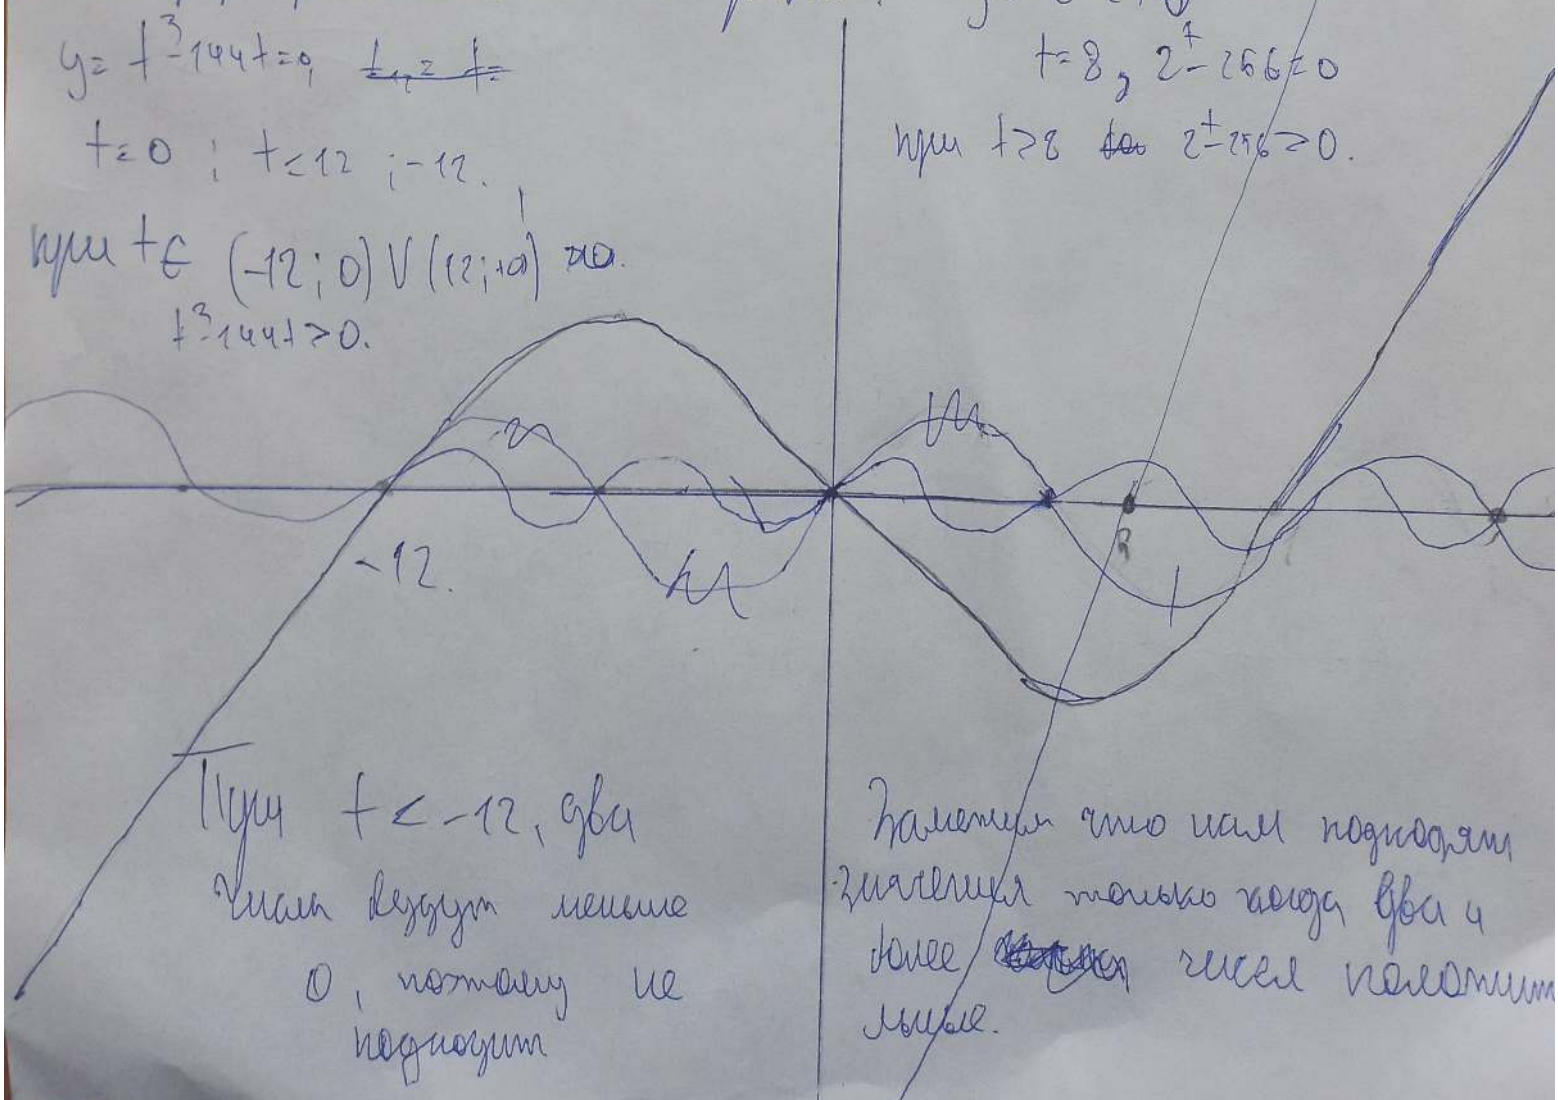 y = t³-144t=0,
t=0 ; t=12 ; -12.
при t∈ (-12; 0) V (12; +∞)
t³-144t>0.
t=8, 2^t-256=0
при t>8 2^t-256>0.
-12.
8
При t < -12, два
числа будут меньше
0, поэтому не
подходит
Заметим что нам подходят
значения только когда два и
более чисел положит
льные.